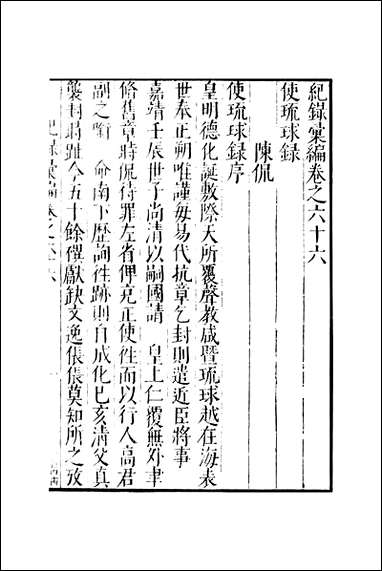 紀錄彙編卷之六十六
使琉球錄
陳侃
使琉球錄序
皇明德化誕敷際天所覆聲教咸暨琉球越在海表
世奉正朔唯謹每易代抗章乞封則遣近臣將事
嘉靖壬辰世子尚清以嗣國請 皇上仁覆無外聿
脩舊章時侃待罪左省俾充正使往而以行人高君
副之 命南下歷詢往跡則自成化己亥清父真
襲封時距今五十餘禩獻缺文逸倀倀莫知所之攷
紀錄彙編卷之六十六